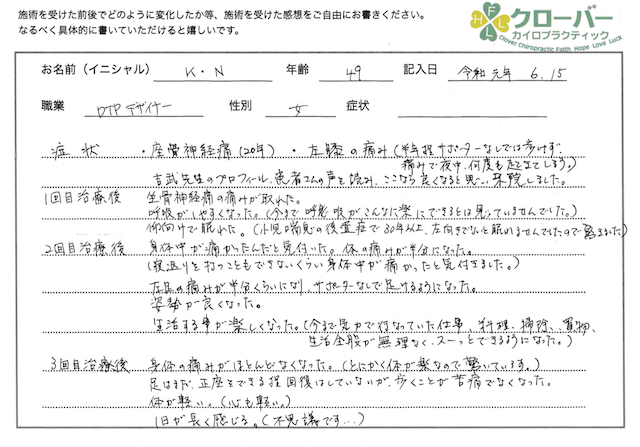 施術を受けた前後でどのように変化したか等、施術を受けた感想をご自由にお書きください。
なるべく具体的に書いていただけると嬉しいです。
クローバー
カイロプラクティック
Clover Chiropractic Faith Hope Love Luck
お名前（イニシャル） K・N 年齢 49 記入日 令和元年 6.15
職業 DTPデザイナー 性別 女 症状
症状 ・座骨神経痛（20年） ・左膝の痛み（半年程サポーターなしでは歩けず、
痛みで夜中、何度も起きてしまう。）
吉武先生のプロフィール、患者さんの声を読み、ここなら良くなると思い来院しました。
1回目治療後 坐骨神経痛の痛みが取れた。
呼吸がしやすくなった。（今まで呼吸がこんなに楽にできるとは思っていませんでした。）
仰向けで眠れた。（小児喘息の後遺症で30年以上、左向きでないと眠れませんでしたので驚きました）
2回目治療後 身体中が痛かったんだと気付いた。体の痛みが半分になった。
（寝返りを打つこともできないくらい身体中が痛かったと気付きました。）
左足の痛みが半分くらいになり、サポーターなしで歩けるようになった。
姿勢が良くなった。
生活する事が楽しくなった。（今まで気力で行なっていた仕事、料理、掃除、買物、
生活全般が無理なく、スーッとできるようになった。）
3回目治療後 身体の痛みがほとんどなくなった。（とにかく体が楽なので驚いています。）
足はまだ、正座をできる程回復はしていないが、歩くことが苦痛でなくなった。
体が軽い。（心も軽い。）
1日が長く感じる。（不思議です…）